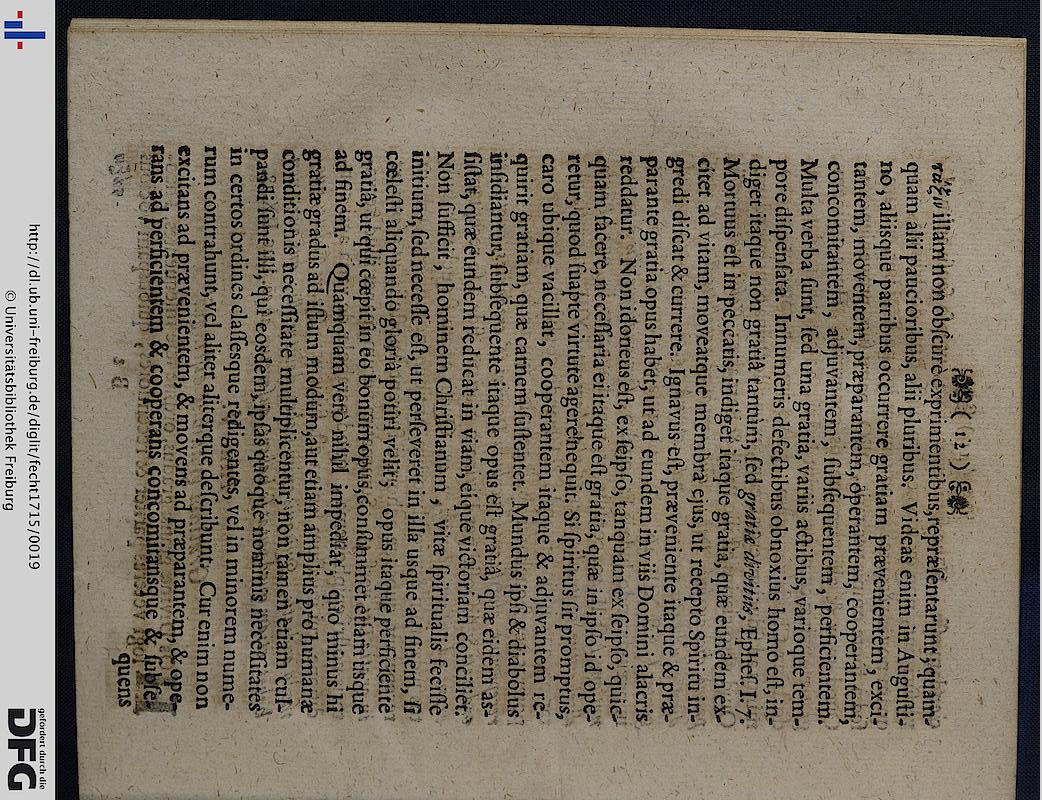 ( 12 )
τάξιν illam non obscure exprimentibus, repræsentarunt; quam-
quam alii paucioribus, alii pluribus. Videas enim in Augusti-
no, aliisque patribus occurrere gratiam prævenientem, exci-
tantem, moventem, præparantem, operantem, cooperantem,
concomitantem, adjuvantem, subsequentem, perficientem.
Multa verba sunt, sed una gratia, variis actibus, varioque tem-
pore dispensata. Innumeris defectibus obnoxius homo est, in-
diget itaque non gratiâ tantùm, sed gratiæ divitiis, Ephes. I. 7.
Mortuus est in peccatis, indiget itaque gratia, quæ eundem ex-
citet ad vitam, moveatque membra ejus, ut recepto Spiritu in-
gredi discat & currere. Ignavus est, præveniente itaque & præ-
parante gratia opus habet, ut ad eundem in viis Domini alacris
reddatur. Non idoneus est, ex seipso, tanquam ex seipso, quic-
quam facere, necessaria ei itaque est gratia, quæ in ipso id ope-
retur, quod suapte virtute agere nequit. Si spiritus sit promptus,
caro ubique vacillat, cooperantem itaque & adjuvantem re-
quirit gratiam, quæ carnem sustentet. Mundus ipsi & diabolus
insidiantur, subsequente itaque opus est gratiâ, quæ eidem as-
sistat, quæ eundem redicat in viam, eique victoriam conciliet.
Non sufficit, hominem Christianum, vitæ spiritualis fecisse
initium, sed necesse est, ut perseveret in illa usque ad finem, si
cœlesti aliquando gloriâ potiri velit; opus itaque perficiente
gratiâ, ut qui cœpit in eo bonum opus, consummet etiam usque
ad finem. Quamquam verò nihil impediat, quo minus hi
gratiæ gradus ad istum modum, aut etiam amplius pro humanæ
conditionis necessitate multiplicentur, non tamen etiam cul-
pandi sunt illi, qui eosdem, ipsas quoque nominis necessitates
in certos ordines classesque redigentes, vel in minorem nume-
rum contrahunt, vel aliter aliterque describunt. Cur enim non
excitans ad prævenientem, & movens ad præparantem, & ope-
rans ad perficientem & cooperans concomitansque & subse-
quens
http://dl.ub.uni-freiburg.de/diglit/fecht1715/0019
© Universitätsbibliothek Freiburg
gefördert durch die
DFG